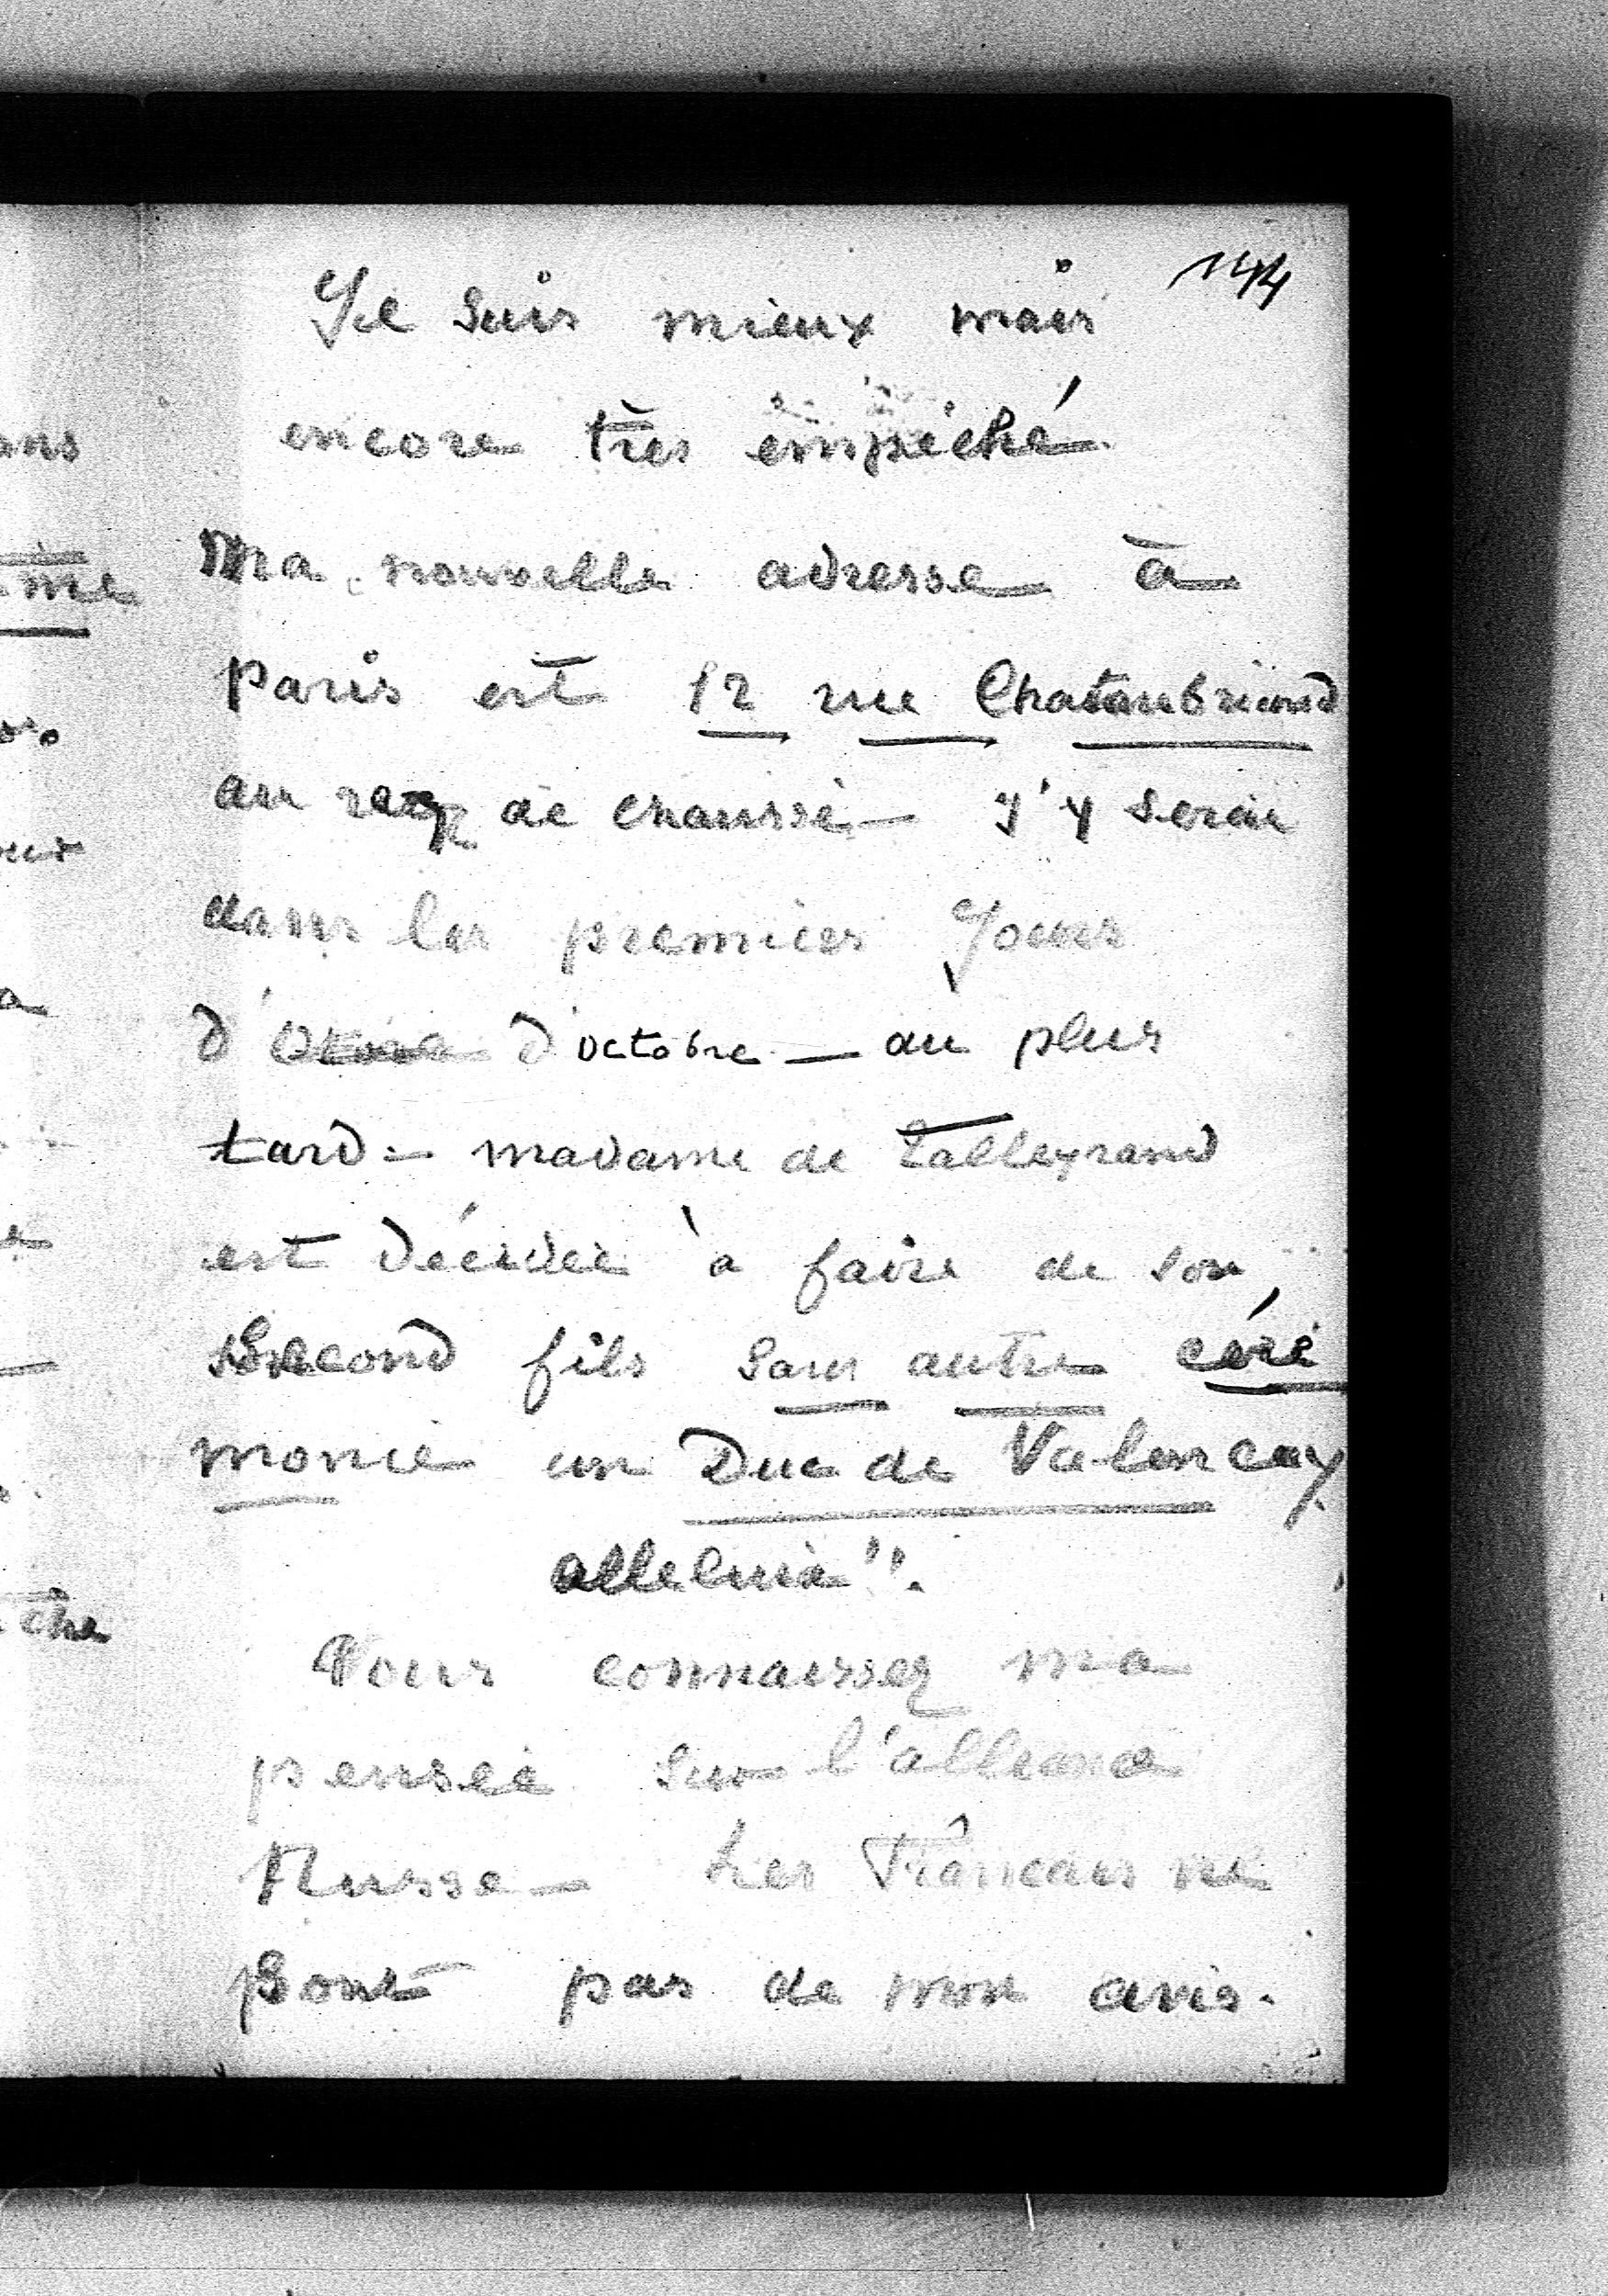 144
Je suis mieux mais
encore très empéché.
Ma nouvelle adresse à
Paris est 12 rue Chataubriand
au rez de chaussé — J'y serai
dans les premiers Jours
d' d'octobre — au plus
tard — madame de Talleyrand
est décidée à faire de son
second fils sans autre céré
monie un Duc de Valencay
alleluia!!.
Vous connaissez ma
pensée sur l'alliance
Russe — Les Francais ne
sont pas de mon avis.
ans
me
a
che